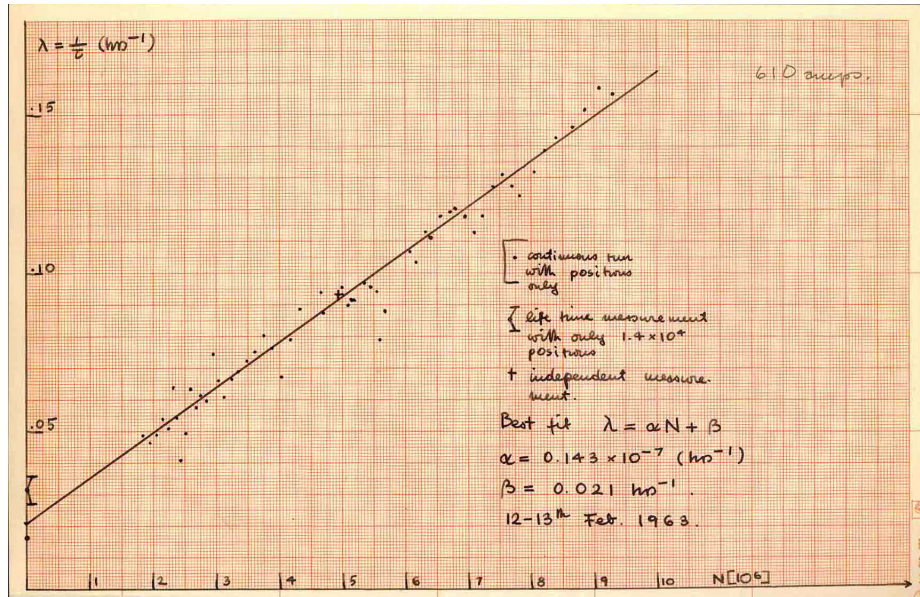 λ = 1/τ (hrs⁻¹)
610 amps.
.15
.10
.05
• continuous run
with positrons
only
life time measurement
with only 1.4×10⁴
positrons
+ independent measure-
ment.
Best fit λ = αN + β
α = 0.143 × 10⁻⁷ (hrs⁻¹)
β = 0.021 hrs⁻¹.
12–13ᵗʰ Feb. 1963.
1 2 3 4 5 6 7 8 9 10 N[10⁶]